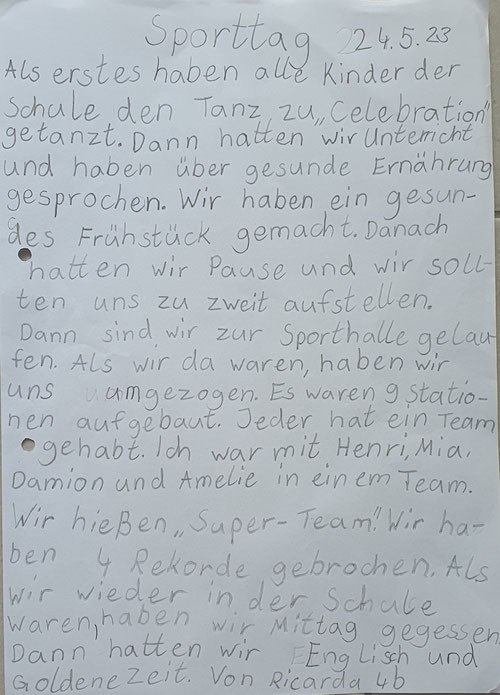 Sporttag 24.5.23
Als erstes haben alle Kinder der
Schule den Tanz zu „Celebration"
getanzt. Dann hatten wir Unterricht
und haben über gesunde Ernährung
gesprochen. Wir haben ein gesun-
des Frühstück gemacht. Danach
hatten wir Pause und wir soll-
ten uns zu zweit aufstellen.
Dann sind wir zur Sporthalle gelau-
fen. Als wir da waren, haben wir
uns umgezogen. Es waren 9 Statio-
nen aufgebaut. Jeder hat ein Team
gehabt. Ich war mit Henri, Mia,
Damion und Amelie in einem Team.
Wir hießen „Super-Team". Wir ha-
ben 4 Rekorde gebrochen. Als
wir wieder in der Schule
waren, haben wir Mittag gegessen.
Dann hatten wir Englisch und
Goldene Zeit. Von Ricarda 4b